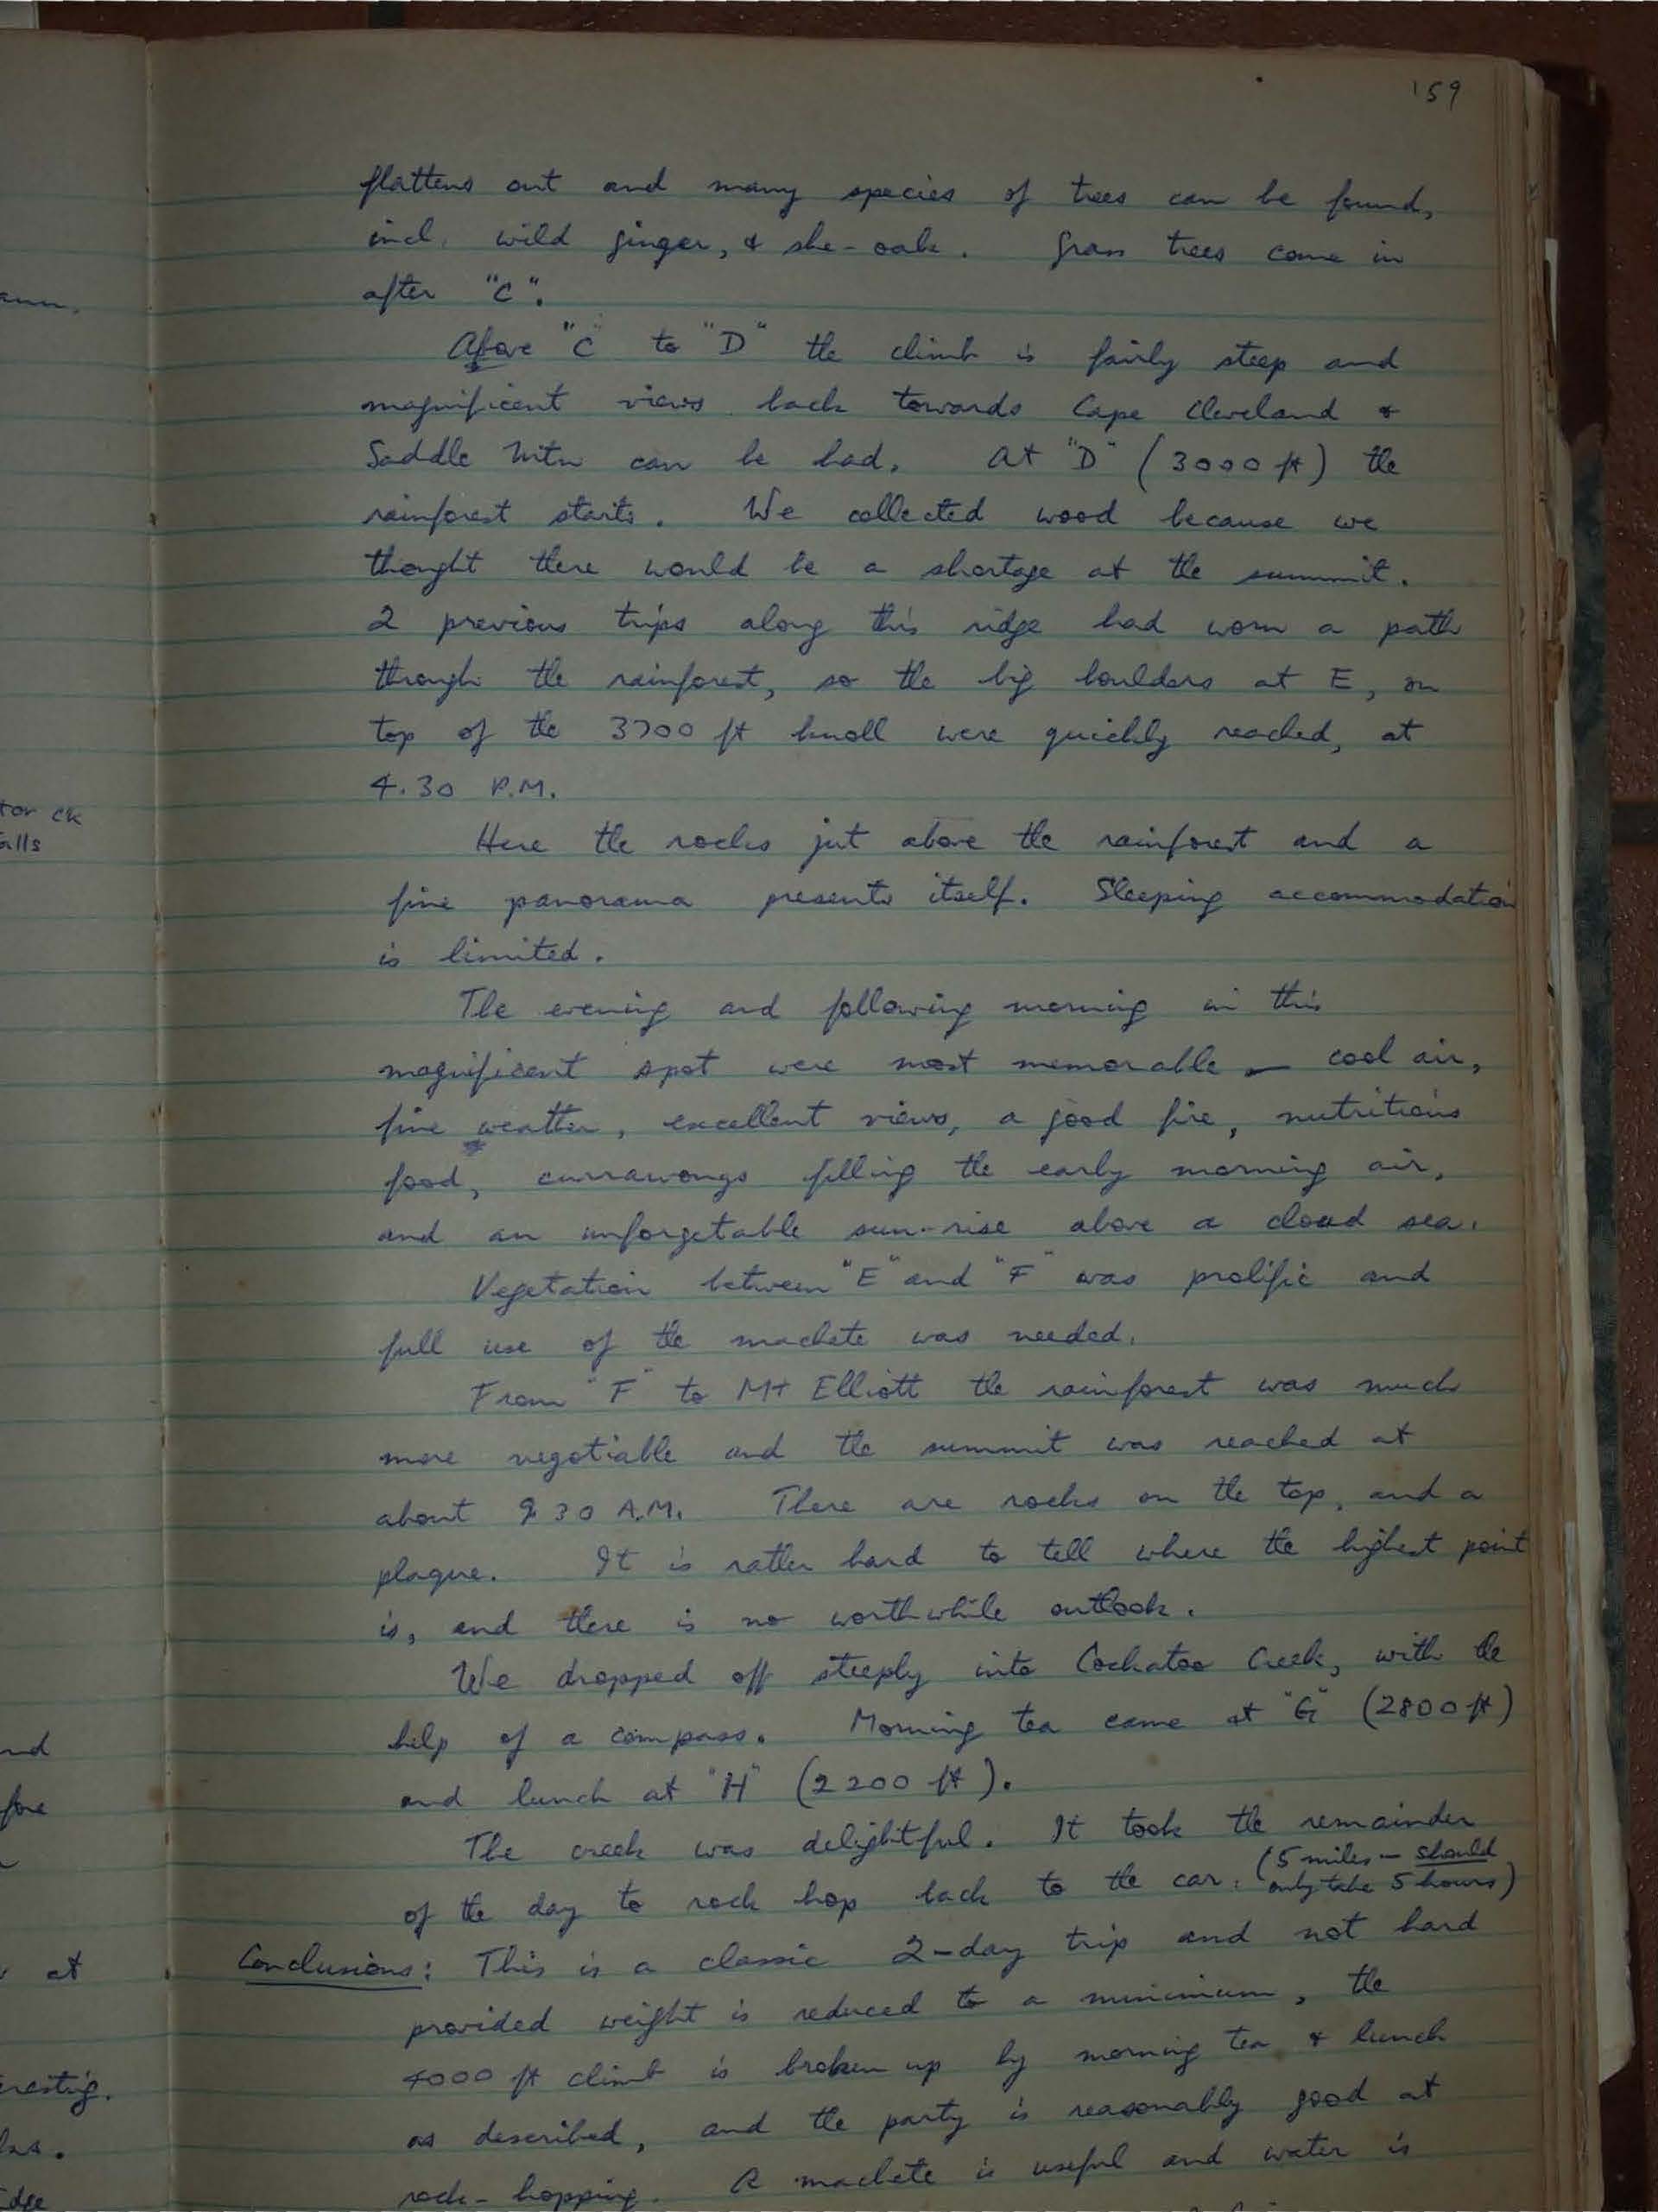 159
flattens out and many species of trees can be found,
incl. wild ginger, & she-oak. Grass trees come in
after "C".
Above "C" to "D" the climb is fairly steep and
magnificent views back towards Cape Cleveland &
Saddle Mtn can be had. At "D" (3000 ft) the
rainforest starts. We collected wood because we
thought there would be a shortage at the summit.
2 previous trips along this ridge had worn a path
through the rainforest, so the big boulders at E, on
top of the 3700 ft knoll were quickly reached, at
4.30 P.M.
Here the rocks jut above the rainforest and a
fine panorama presents itself. Sleeping accommodation
is limited.
The evening and following morning in this
magnificent spot were most memorable – cool air,
fine weather, excellent views, a good fire, nutritious
food, currawongs filling the early morning air,
and an unforgetable sun-rise above a cloud sea.
Vegetation between "E" and "F" was prolific and
full use of the machete was needed.
From "F" to Mt Elliott the rainforest was much
more negotiable and the summit was reached at
about 30 A.M. There are rocks on the top, and a
plaque. It is rather hard to tell where the highest point
is, and there is no worthwhile outlook.
We dropped off steeply into Cockatoo Creek, with the
help of a compass. Morning tea came at "G" (2800 ft)
and lunch at "H" (2200 ft).
The creek was delightful. It took the remainder
of the day to rock hop back to the car. (5 miles – should
only take 5 hours)
Conclusions: This is a classic 2-day trip and not hard
provided weight is reduced to a minimum, the
4000 ft climb is broken up by morning tea & lunch
as described, and the party is reasonably good at
rock-hopping. A machete is useful and water is
tor ck
alls
nd
at